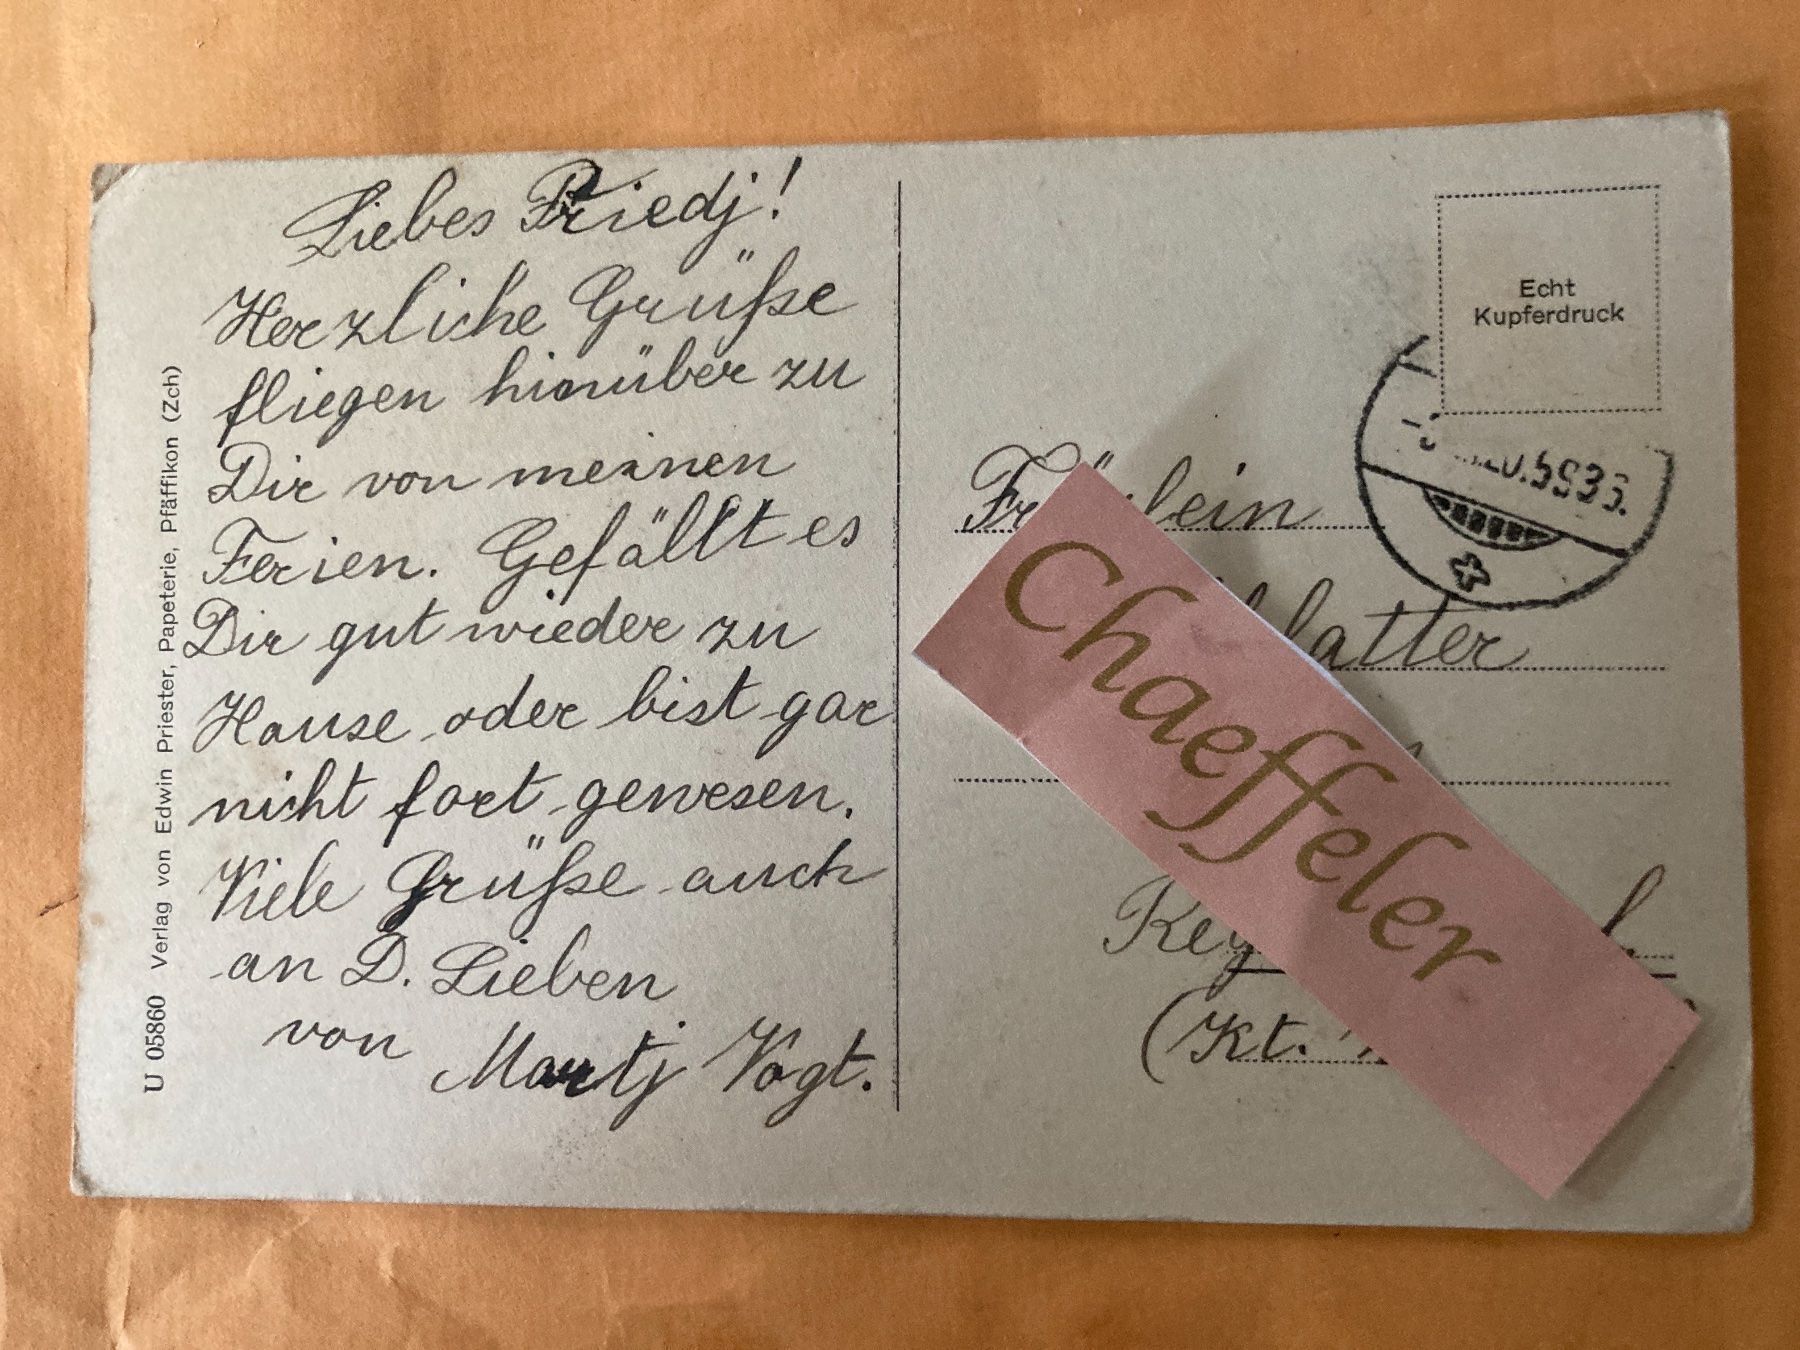 Liebes Friedj!
Herzliche Grüße
fliegen hinüber zu
Dir von meinen
Ferien. Gefällt es
Dir gut wieder zu
Hause oder bist gar
nicht fort gewesen.
Viele Grüße auch
an D. Lieben
von Martj Vogt.
U 05860 Verlag von Edwin Priester, Papeterie, Pfäffikon (Zch)
Echt
Kupferdruck
Fräulein
Chaeffeler
(Kt.